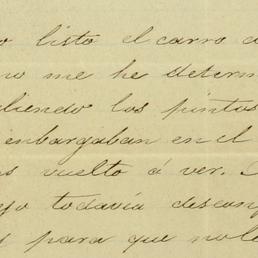 o listo el carro d
no me he determ
liendo los puntos
enbargaban en el
s vuelto á ver.
yo todavía descon
y para que no le